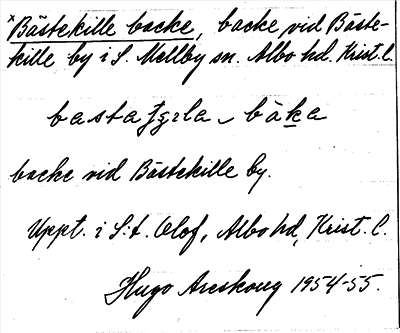 ×Bästekille backe, backe vid Bäste-
kille by i S. Mellby sn. Albo hd. Krist. l.
backe vid Bästekille by.
Uppt. i S:t. Olof, Albo hd, Krist. l.
Hugo Areskoug 1954-55.